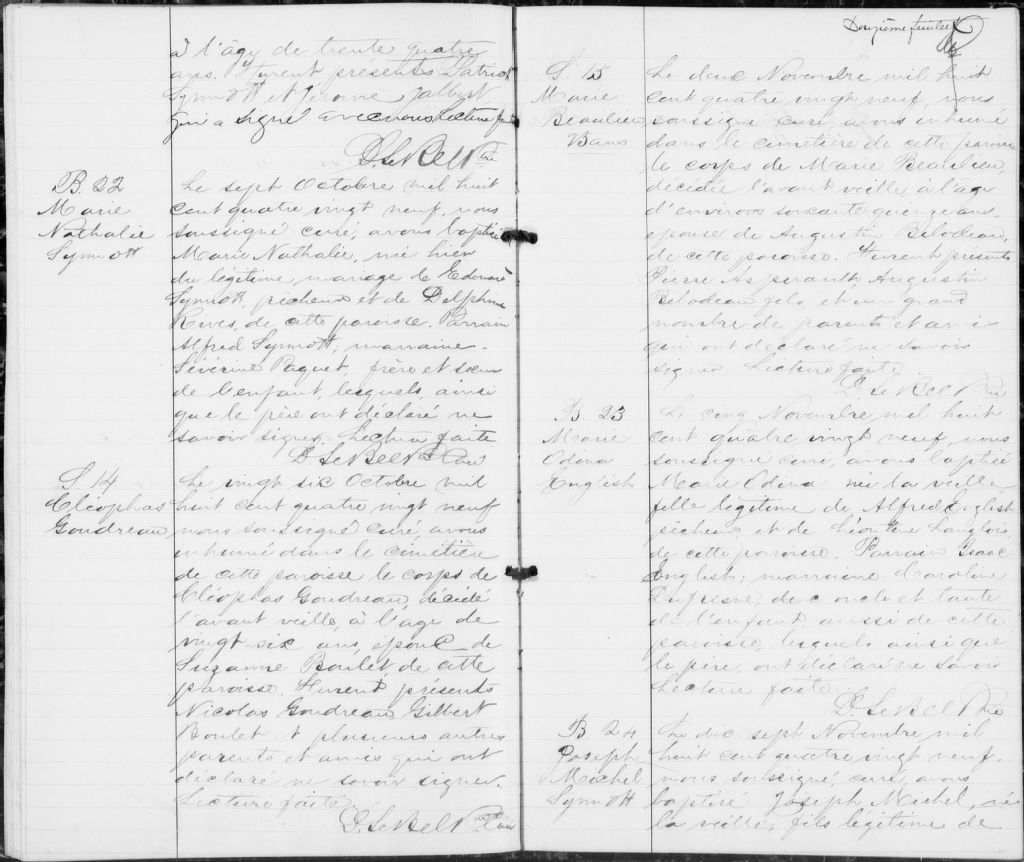 à l'âge de trente quatre
ans. Furent présents Patrick
Synnott et Jérome Jalbert
qui a signé avec nous Lecture faite
D. LeBel Ptre
B. 22
Marie
Nathalie
Synnott
Le sept Octobre mil huit
cent quatre vingt neuf, nous
soussigné curé, avons baptisé
Marie Nathalie, née hier
du légitime mariage de Edouard
Synnott, pêcheur et de Delphine
Rives, de cette paroisse. Parrain
Alfred Synnott; marraine
Séverine Paquet, frère et sœur
de l'enfant, lesquels, ainsi
que le père ont déclaré ne
savoir signer. Lecture faite
D. LeBel Ptre Curé
S. 14
Cléophas
Goudreau
Le vingt six Octobre mil
huit cent quatre vingt neuf
nous soussigné curé, avons
inhumé dans le cimetière
de cette paroisse le corps de
Cléophas Goudreau, décédé
l'avant veille, à l'age de
vingt-six ans, époux de
Suzanne Boulet de cette
paroisse. Furent présents
Nicolas Goudreau, Gilbert
Boulet et plusieurs autres
parents et amis qui ont
déclaré ne savoir signer.
Lecture faite.
D. LeBel Ptre Curé
Douzième feuillet
S. 15
Marie
Beaulieu
Le deux Novembre mil huit
cent quatre vingt neuf, nous
soussigné curé, avons inhumé
dans le cimetière de cette paroisse
le corps de Marie Beaulieu,
décédée l'avant veille, à l'age
d'environ soixante quinze ans,
épouse de Augustin Bilodeau,
de cette paroisse. Furent présents
Pierre Augustin
Bilodeau fils et un grand
nombre de parents et amis
qui ont déclaré ne savoir
signer. Lecture faite
D. LeBel Ptre
B. 23
Marie
Odina
English
Le cinq Novembre mil huit
cent quatre vingt neuf, nous
soussigné curé, avons baptisé
Marie Odina née la veille
fille légitime de Alfred English
pêcheur, et de Léontine Langlois
de cette paroisse. Parrain Isaac
English; marraine Caroline
Dufresne, de c oncle et tante
de l'enfant aussi de cette
paroisse, lesquels ainsi que
le père, ont déclaré ne savoir
Lecture faite.
D. LeBel Ptre
B. 24
Joseph
Michel
Synnott
Le dix-sept Novembre mil
huit cent quatre vingt neuf,
nous soussigné, curé, avons
baptisé Joseph Michel, né
la veille, fils légitime de